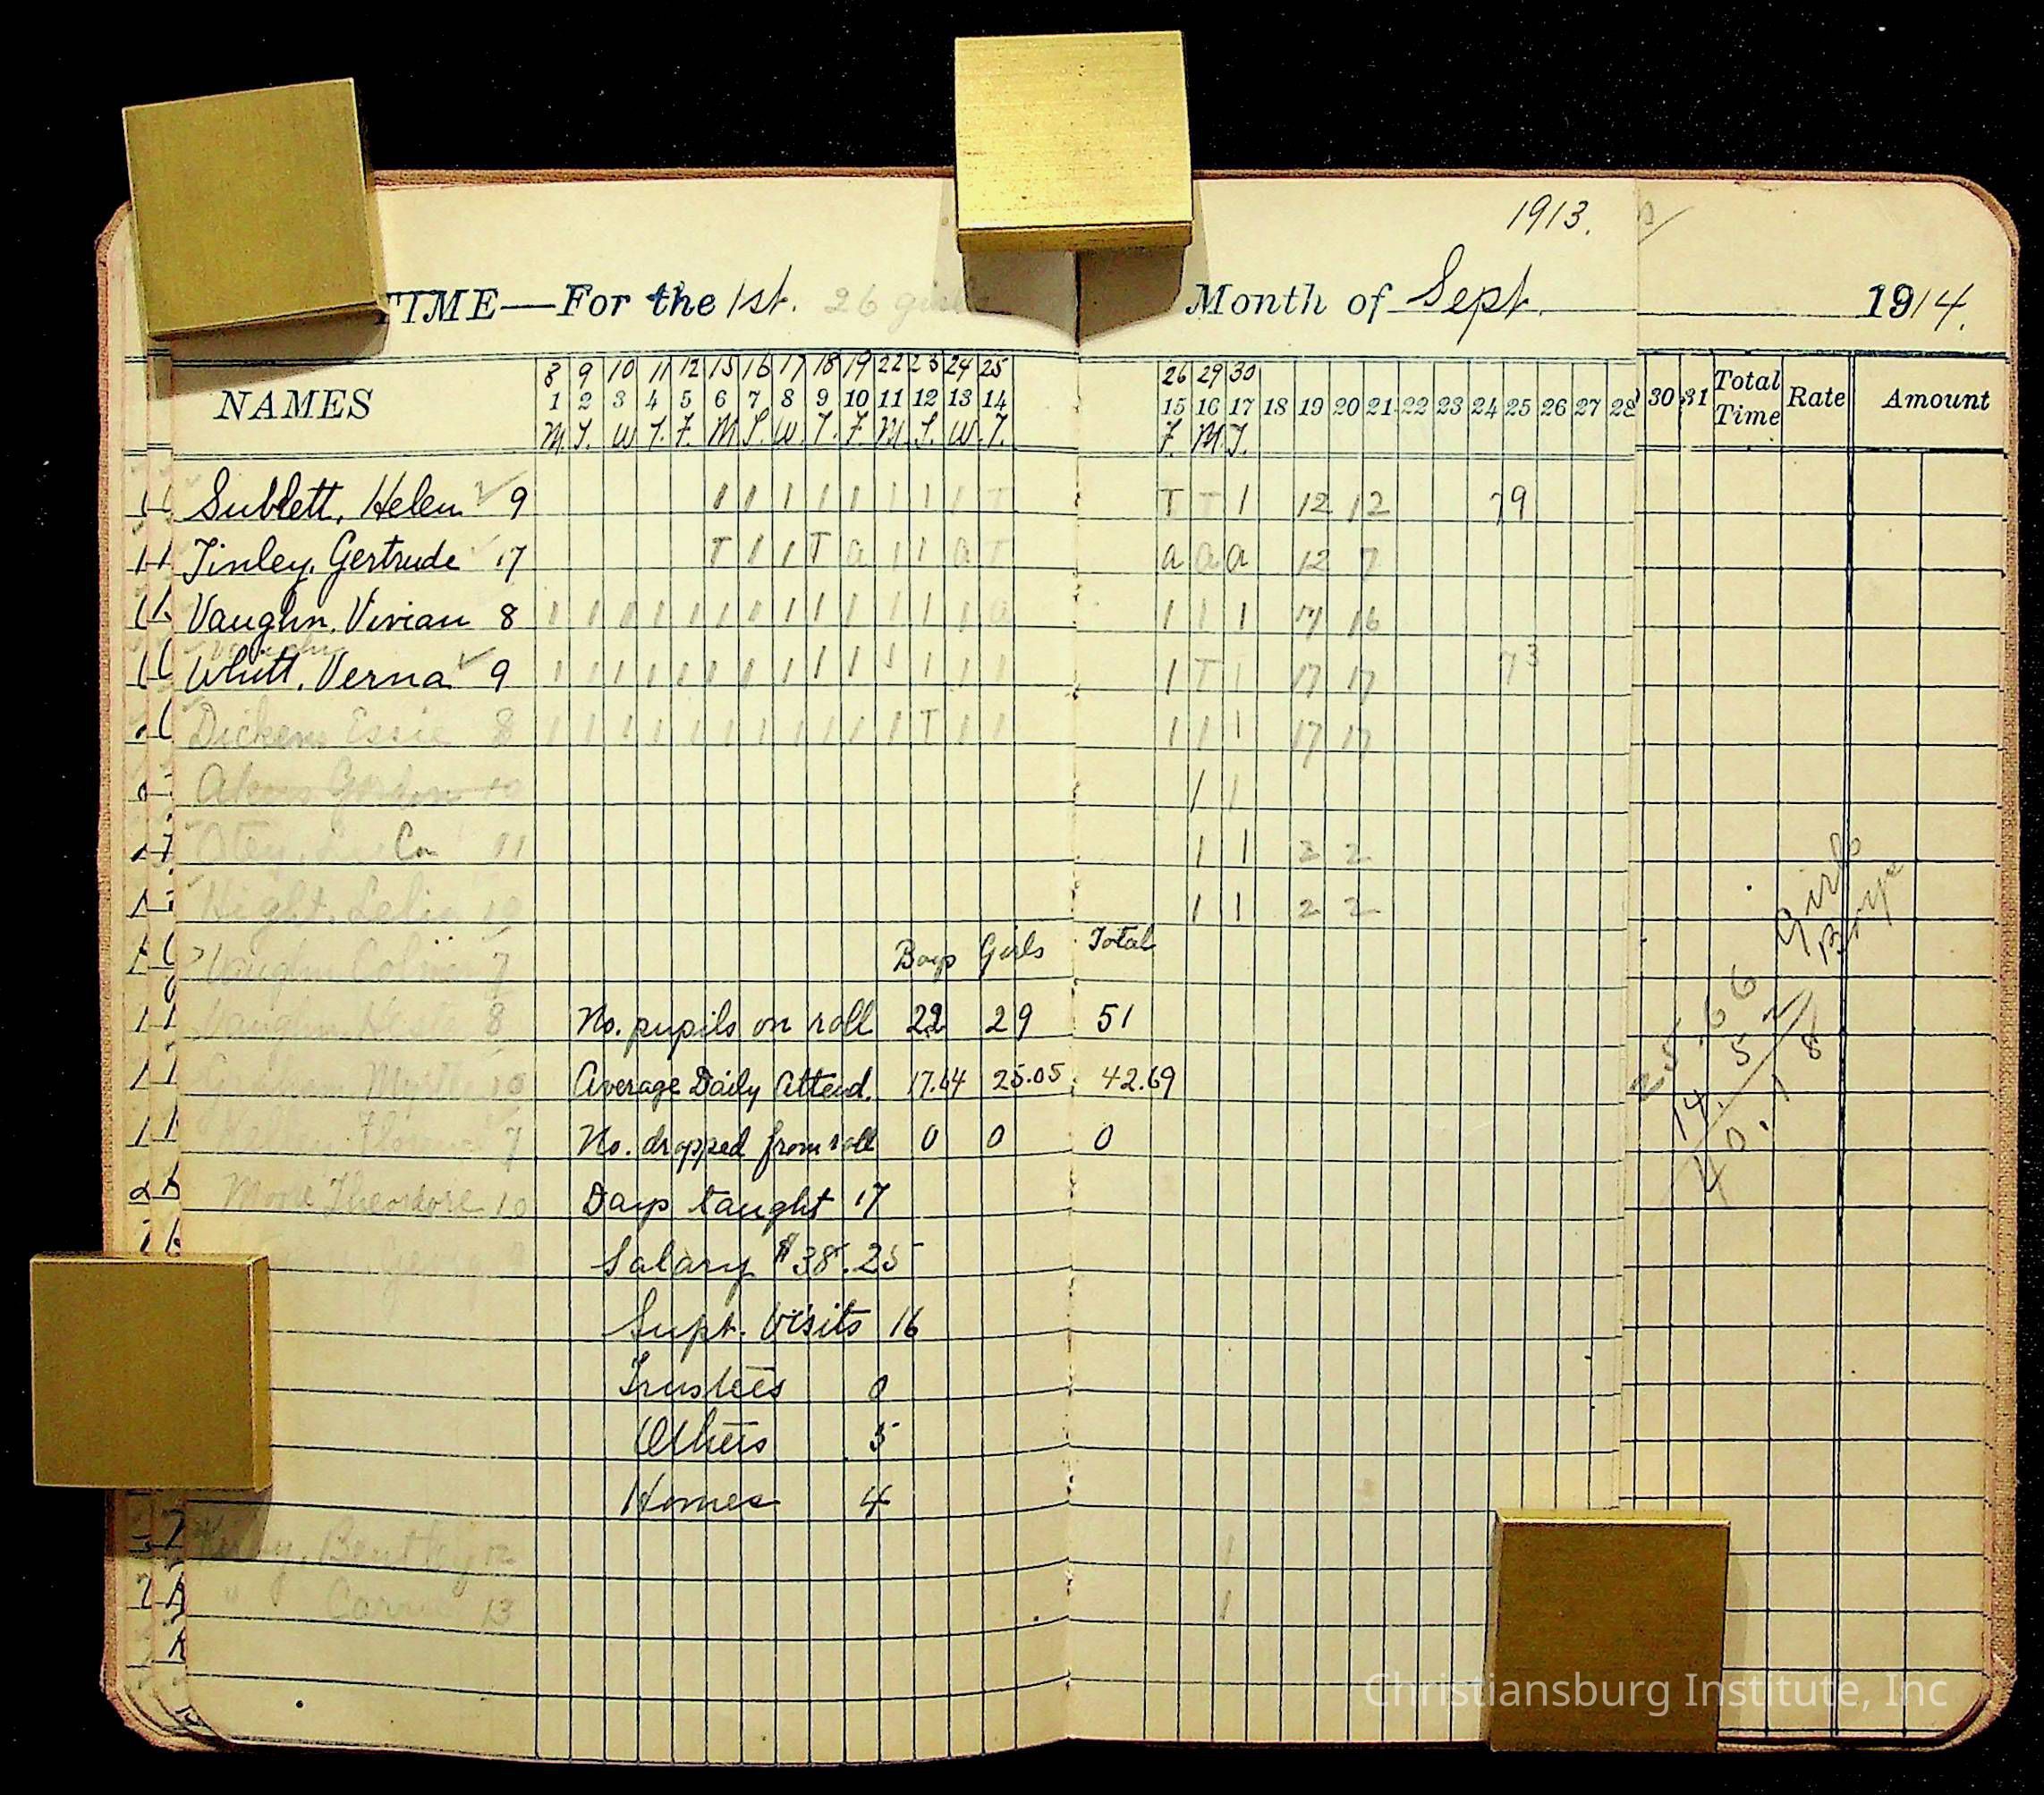 1913.
TIME—For the 1st. 26 girls Month of Sept. 1914.
8 9 10 11 12 15 16 17 18 19 22 23 24 25 26 29 30
NAMES 1 2 3 4 5 6 7 8 9 10 11 12 13 14 15 16 17 18 19 20 21 22 23 24 25 26 27 28 30 31 Total Time Rate Amount
M. T. W T. F. M T. W. T. F. M T. W. T. F. M. T.
Sublett, Helen 9 1 1 1 1 1 1 1 1 T T T 1 12 12 79
Tinley, Gertrude 17 T 1 1 T a 1 1 a T a a a 12 7
Vaughn, Vivian 8 1 1 1 1 1 1 1 1 1 1 1 1 1 a 1 1 1 17 16
Whitt, Verna 9 1 1 1 1 1 1 1 1 1 1 1 1 1 1 1 T 1 17 17 73
Dickens Essie 8 1 1 1 1 1 1 1 1 1 1 1 T 1 1 1 1 1 17 17
Akers 10 1 1
Otey, Co 11 1 1 2 2
Hight, Lelia 10 1 1 2 2
Vaughn 7 Boys Girls Total
Vaughn 8 No. pupils on roll 22 29 51
Myrtle 10 Average Daily Attend. 17.64 25.05 42.69
7 No. dropped from roll 0 0 0
Theodore 10 Days taught 17
Salary $38.25
Supt. Visits 16
Trustees 0
Others 5
Homes 4
Bentley 12 1
" Carrie 13 1
Girls
Boys
25.66
14.52
40.18
Christiansburg Institute, Inc